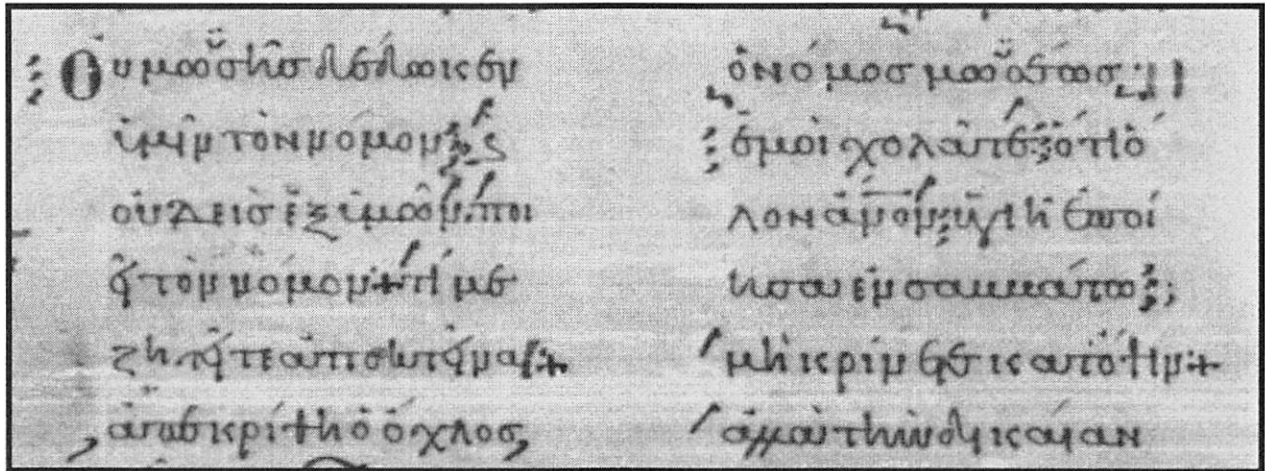 Οὐ μωϋσῆς δέδωκεν
ὑμῖν τὸν νόμον· κς
οὐδεὶς ἐξ ὑμῶν ποι
εῖ τὸν νόμον + τί με
ζητεῖτε ἀποκτεῖναι +
ἀπεκρίθη ὁ ὄχλος,
ὁ νόμος μωϋσέως
ἐμοὶ χολᾶτε ὅτι ὅ
λον ἄνον ὑγιῆ ἐποί
ησα ἐν σαββάτω;
μὴ κρίνετε κατ ὄψιν +
ἀλλὰ τὴν δικαίαν